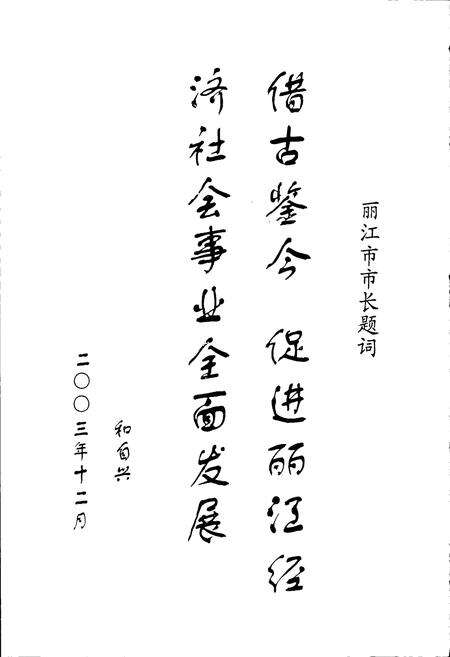 丽江市市长题词
借古鉴今 促进丽江经
济社会事业全面发展
和自兴
二〇〇三年十二月